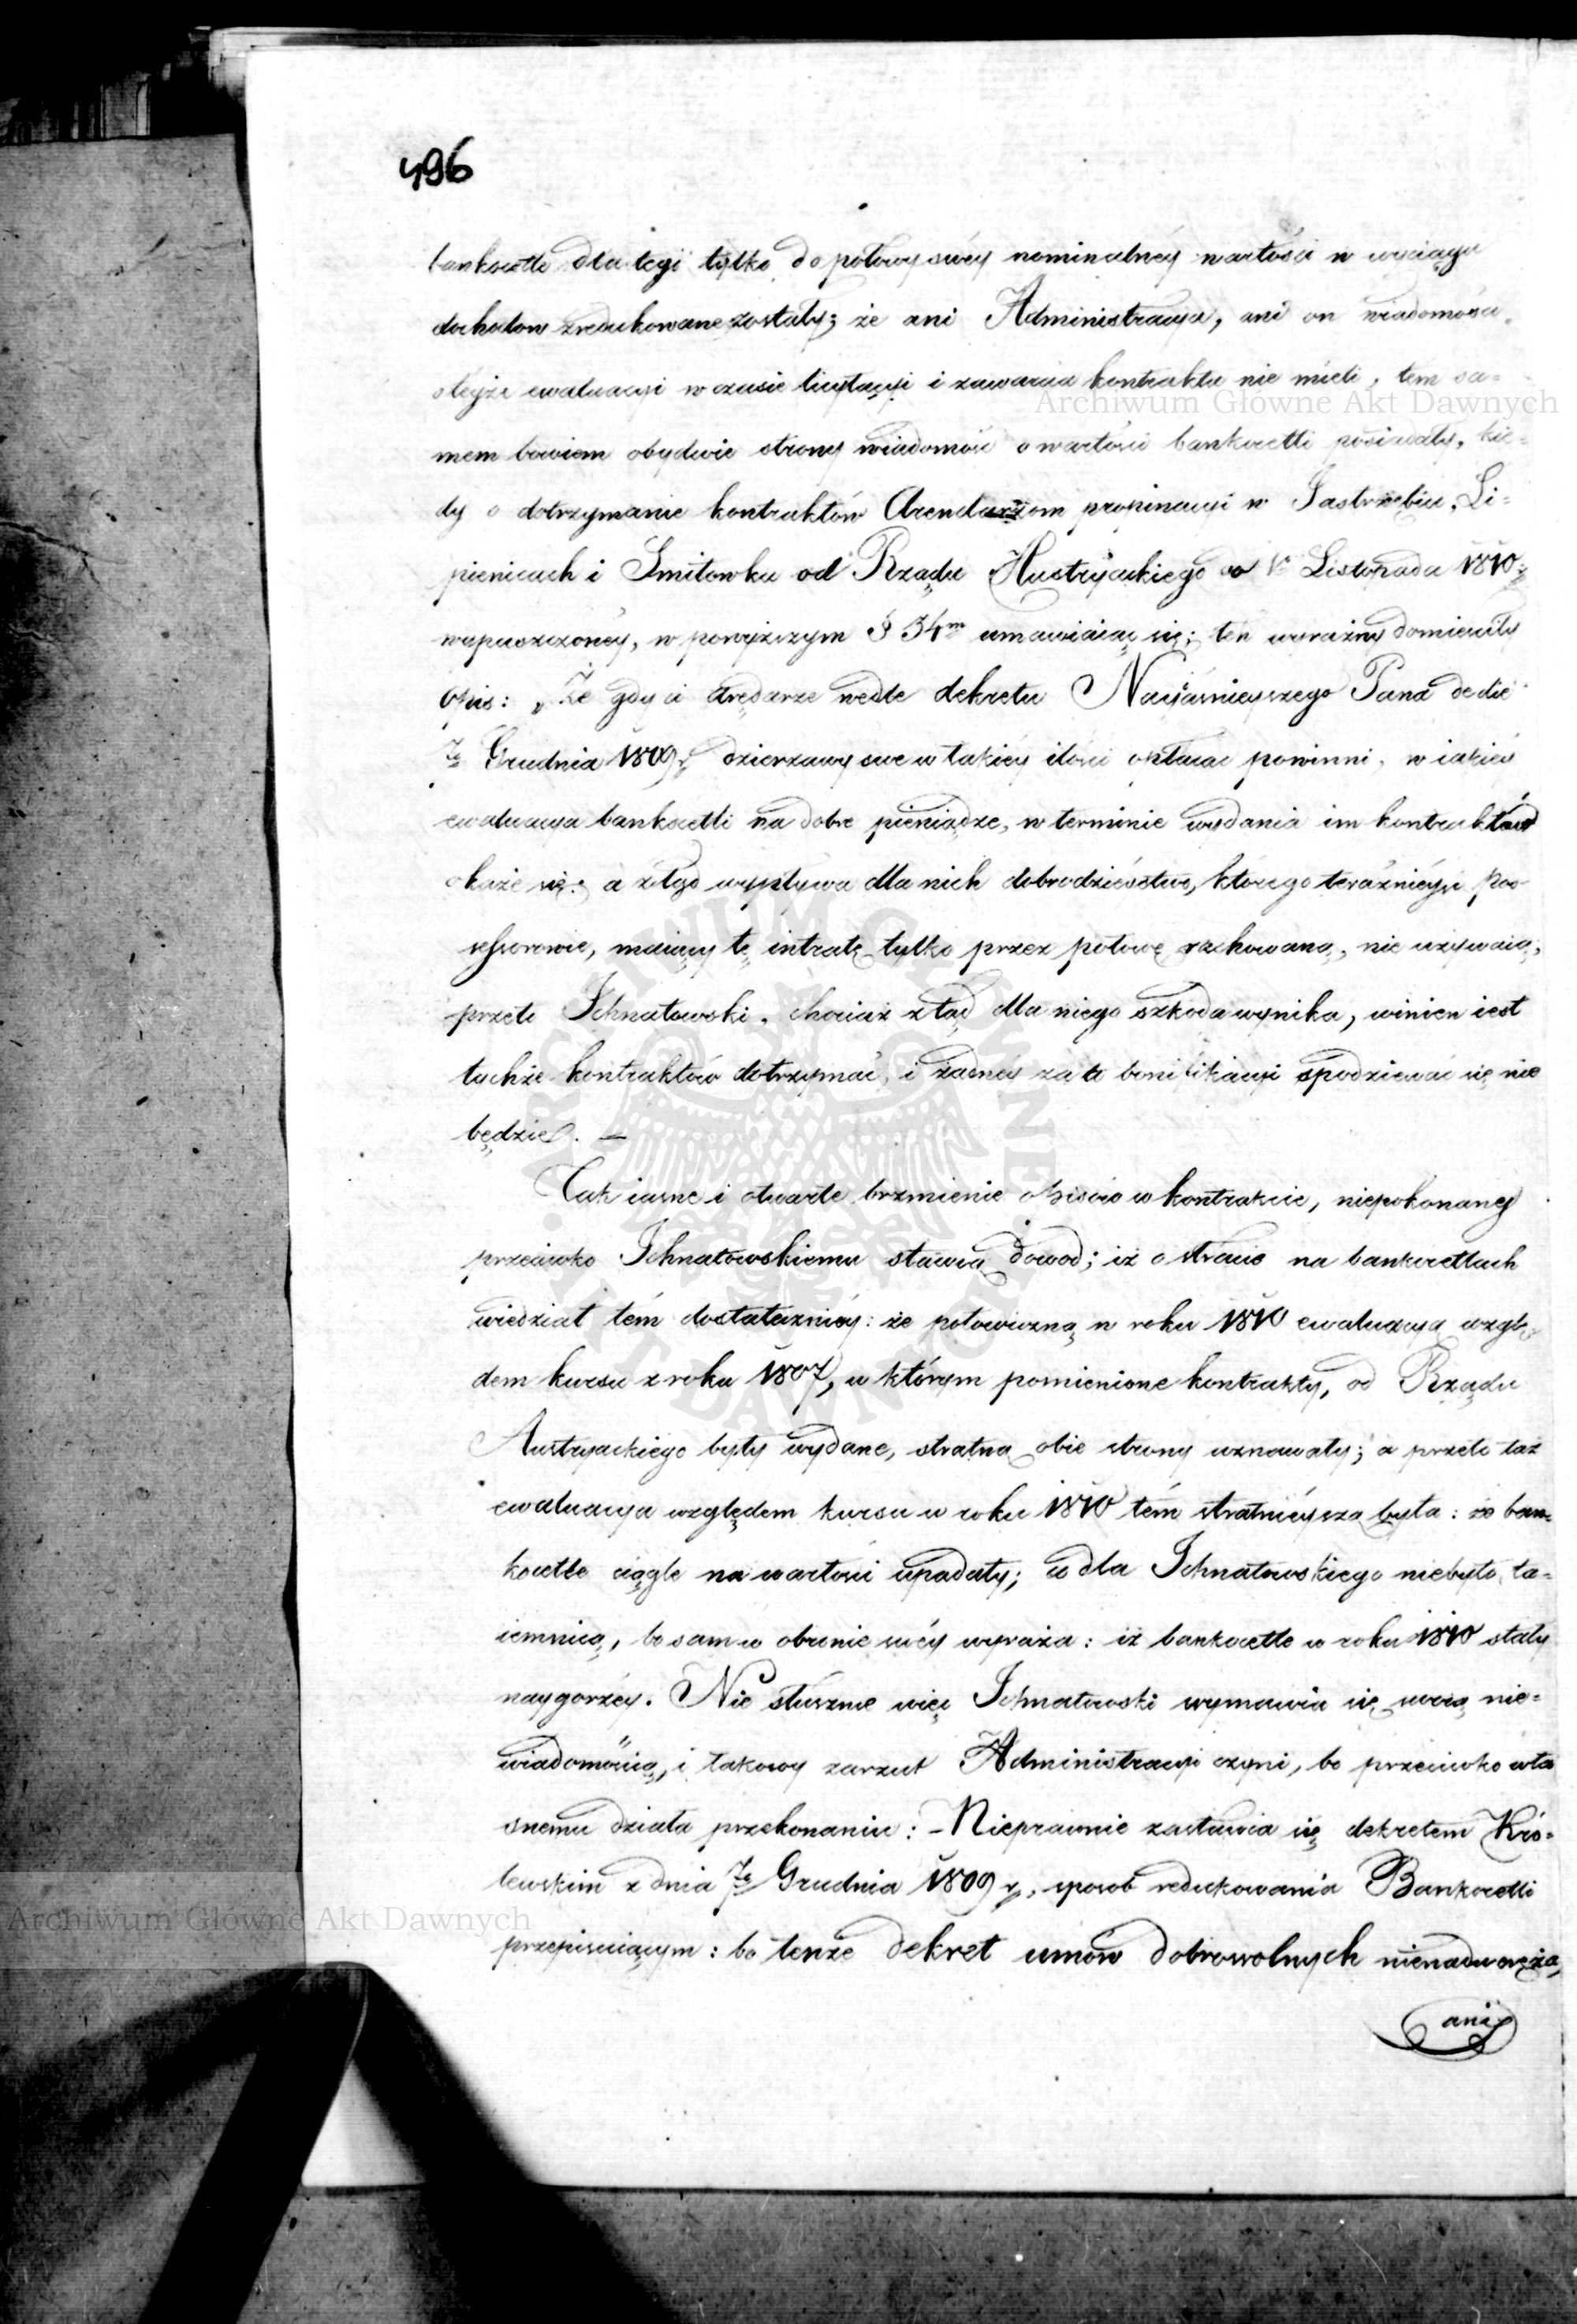 496
bankocetle dla tego tylko do połowy swéy nominalnéy wartości w wyciągu
dochodow zredukowane zostały; że ani Administracya, ani on wiadomości
téyże ewaluacyi w czasie licytacyi i zawarcia kontraktu nie mieli, tem sa=
mem bowiem obydwie strony wiadomość o wartości bankocetli posiadały, kie=
dy o dotrzymanie kontraktów Arendarzom propinacyi w Jastrzębiu, Li=
pienicach i Smiłowku od Rządu Austryackiego do Listopada 1810
wypuszczonéy, w powyższym § 34m umawiaiąc się; ten wyraźny domieścily
opis: „Że gdy ci Arędarze wedle dekretu Nayiaśnieyszego Pana de die
7o Grudnia 1809 r. dzierzawy swe w takiéy ilości opłacać powinni, w iakiéy
ewaluacya bankocetli na dobre pieniądze, w terminie wydania im kontraktów
okaże się; a z tąd wypływa dla nich dobrodzieystwo, którego teraźnieysi pos=
sessorowie, maiący tę intratę tylko przez połowę rachowaną, nie używaią,
przeto Ichnatowski, chociaż z tąd dla niego szkoda wynika, winien iest
tychże kontraktów dotrzymać, i żadnéy za to bonifikacyi spodziewać się nie
będzie. —
Tak iasne i otwarte brzmienie opisów w kontrakcie, niepokonany
przeciwko Ichnatowskiemu stawia dowod; iż o stracie na bankocetlach
wiedział tém dostateczniéy: że połowiczną w roku 1810 ewaluacyą wzglę=
dem kursu z roku 1807, w którym pomienione kontrakty, od Rządu
Austryackiego były wydane, stratną obie strony uznawały; a przeto taż
ewaluacya względem kursu w roku 1810 tém stratnieysza była: że ban=
kocetle ciągle na wartości upadały; co dla Ichnatowskiego niebyło ta=
iemnicą, bo sam w obronie swéy wyraża: iż bankocetle w roku 1810 stały
naygorzéy. Nie słusznie więc Ichnatowski wymawia się swoią nie=
wiadomością, i takowy zarzut Administracyi czyni, bo przeciwko wła
snemu działa przekonaniu: – Nieprawnie zastawia się dekretem Kró=
lewskim z dnia 7o Grudnia 1809 r., sposob redukowania Bankocetli
przepisuiącym: bo tenże dekret umów dobrowolnych nienadworęża,
ani
Archiwum Główne Akt Dawnych
Archiwum Główne Akt Dawnych